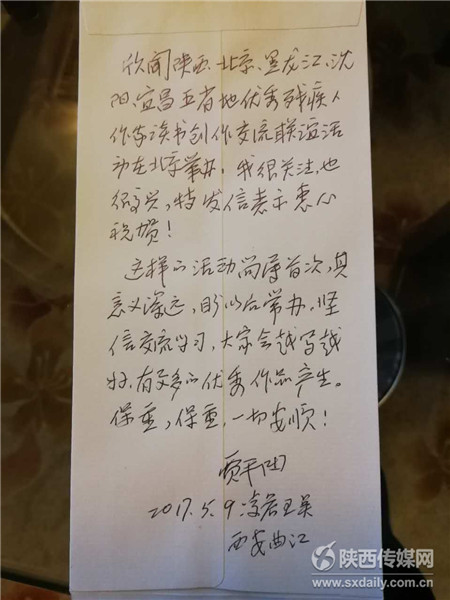 欣闻陕西、北京、黑龙江、沈
阳、宜昌五省地优秀残疾人
作家读书创作交流联谊活
动在北京举办,我很关注,也
很高兴,特发信表示衷心
祝贺!
这样的活动尚属首次,其
意义深远,盼以后常办,坚
信交流学习,大家会越写越
好,有更多的优秀作品产生。
保重,保重,一切安顺!
贾平凹
2017.5.9凌晨
西安曲江
陕西传媒网
www.sxdaily.com.cn